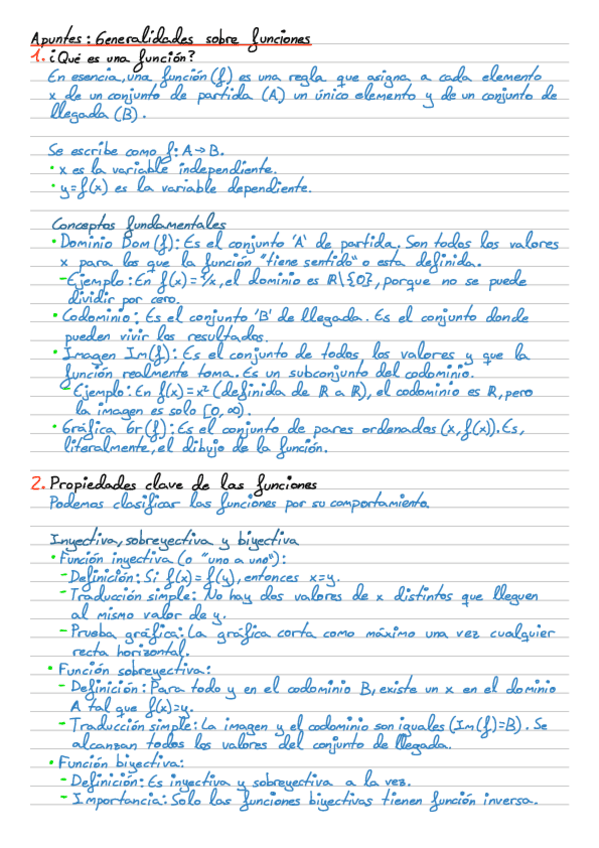 Apuntes: Generalidades sobre funciones
1. ¿Qué es una función?
En esencia, una función (f) es una regla que asigna a cada elemento
x de un conjunto de partida (A) un único elemento y de un conjunto de
llegada (B).
Se escribe como f: A→B.
• x es la variable independiente.
• y=f(x) es la variable dependiente.
Conceptos fundamentales
• Dominio Dom(f): Es el conjunto 'A' de partida. Son todos los valores
x para los que la función "tiene sentido" o esta definida.
– Ejemplo: En f(x)=1/x, el dominio es ℝ\{0}, porque no se puede
dividir por cero.
• Codominio: Es el conjunto 'B' de llegada. Es el conjunto donde
pueden vivir los resultados.
• Imagen Im(f): Es el conjunto de todos, los valores y que la
función realmente toma. Es un subconjunto del codominio.
– Ejemplo: En f(x)=x² (definida de ℝ a ℝ), el codominio es ℝ, pero
la imagen es solo [0,∞).
• Gráfica Gr(f): Es el conjunto de pares ordenados (x,f(x)). Es,
literalmente, el dibujo de la función.
2. Propiedades clave de las funciones
Podemos clasificar las funciones por su comportamiento.
Inyectiva, sobreyectiva y biyectiva
• Función inyectiva (o "uno a uno"):
– Definición: Si f(x)=f(y), entonces x=y.
– Traducción simple: No hay dos valores de x distintos que lleguen
al mismo valor de y.
– Prueba gráfica: La gráfica corta como máximo una vez cualquier
recta horizontal.
• Función sobreyectiva:
– Definición: Para todo y en el codominio B, existe un x en el dominio
A tal que f(x)=y.
– Traducción simple: La imagen y el codominio son iguales (Im(f)=B). Se
alcanzan todos los valores del conjunto de llegada.
• Función biyectiva:
– Definición: Es inyectiva y sobreyectiva a la vez.
– Importancia: Solo las funciones biyectivas tienen función inversa.